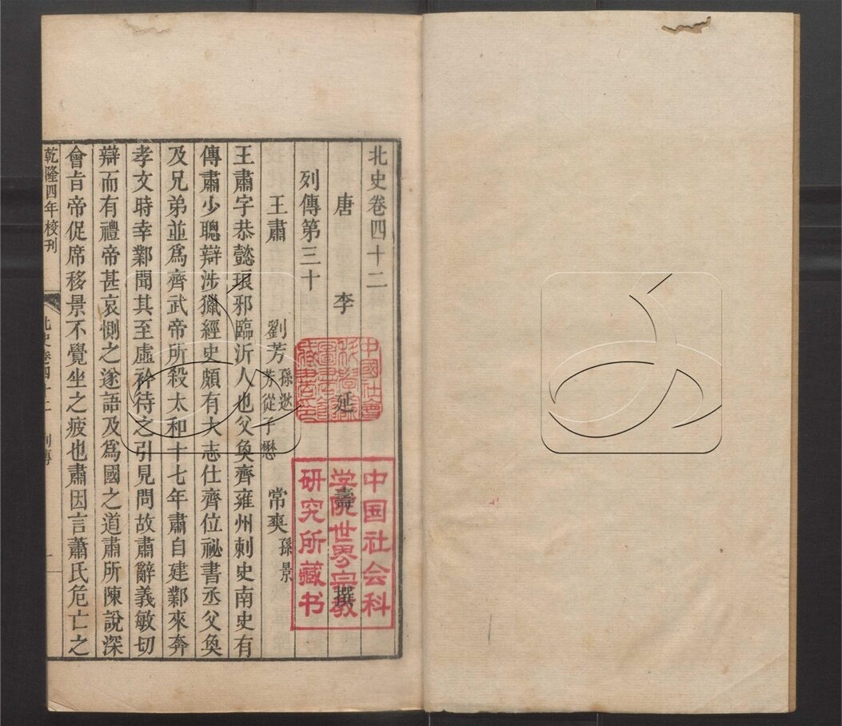 北史卷四十二
唐 李 延 壽 撰
列傳第三十
王肅 劉芳 孫逖 芳從子懋 常爽 孫景
王肅字恭懿琅邪臨沂人也父奐齊雍州刺史南史有
傳肅少聰辯涉獵經史頗有大志仕齊位祕書丞父奐
及兄弟並爲齊武帝所殺太和十七年肅自建鄴來奔
孝文時幸鄴聞其至虛衿待之引見問故肅辭義敏切
辯而有禮帝甚哀惻之遂語及爲國之道肅所陳說深
會旨帝促席移景不覺坐之疲也肅因言蕭氏危亡之
乾隆四年校刊
北史卷四十二 列傳 一
中国社会科
学院世界宗教
研究所藏书
中國社會
科學院